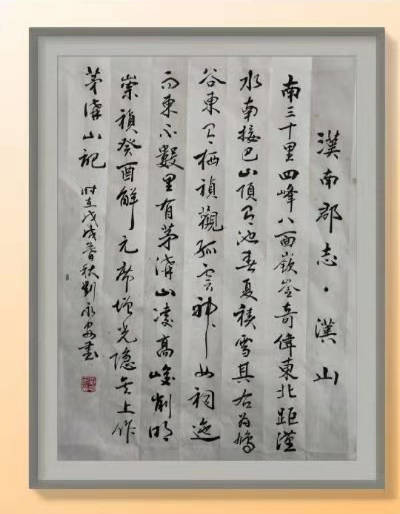 漢南郡志·漢山
南三十里四峰八面嶔崟奇偉東北距漢
水南接巴山頂有池春夏積雪其右為鳩
谷東有栖禎觀孤雲神女祠迤
而東不數里有茅溝山凌高峻削明
崇禎癸酉解元席增光隱其上作
茅溝山記
時在戊戌春秋劉永安書